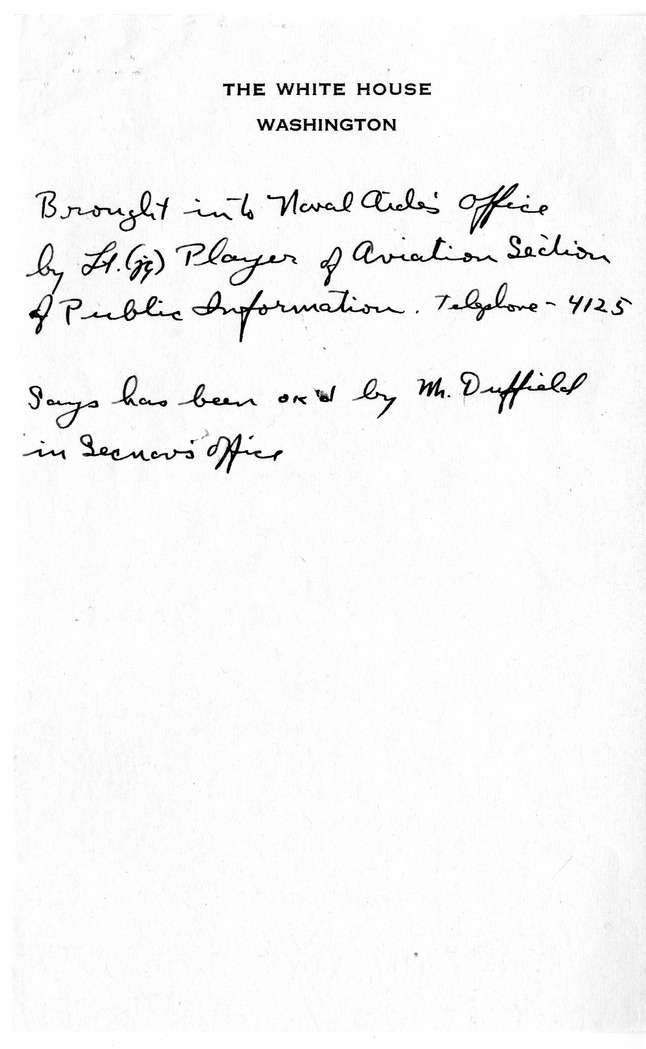 THE WHITE HOUSE
WASHINGTON
Brought into Naval Aide's office
by Lt. (jg) Player of Aviation Section
of Public Information. Telephone - 4125
Says has been OK'd by Mr. Duffield
in Secnav's office